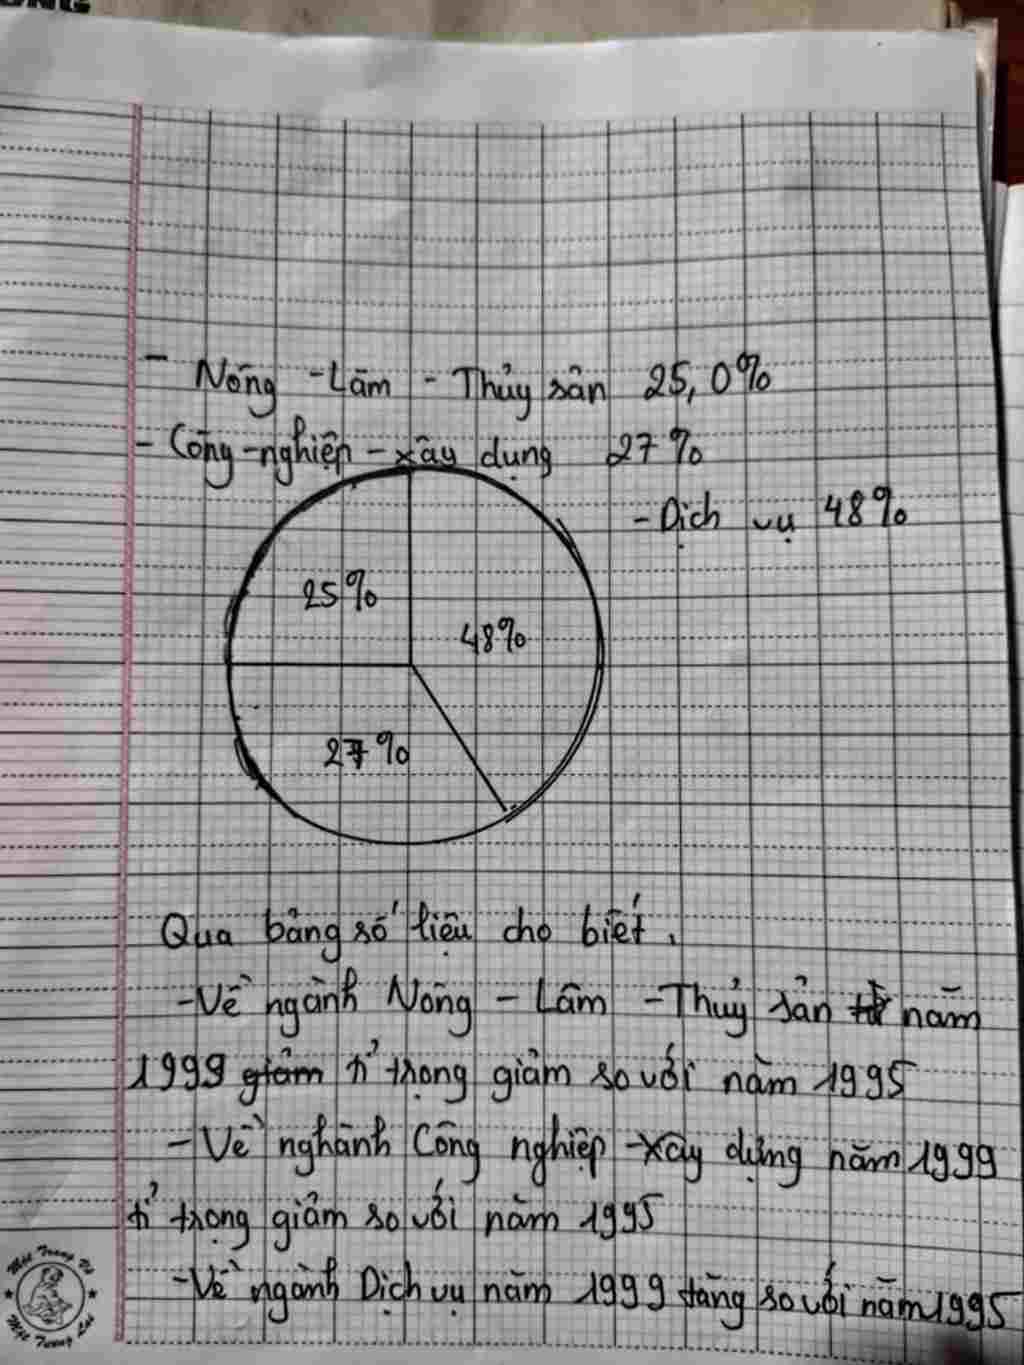 - Nông - Lâm - Thủy sản 25,0%
- Công - nghiệp - xây dụng 27%
- Dịch vụ 48%
25%
48%
27%
Qua bảng số liệu cho biết.
- Về ngành Nông - Lâm - Thủy sản năm
1999 tỉ trọng giảm so với năm 1995
- Về nghành Công nghiệp - xây dựng năm 1999
tỉ trọng giảm so với năm 1995
- Về ngành Dịch vụ năm 1999 tăng so với năm 1995
Một Trang Vở
Một Tương Lai